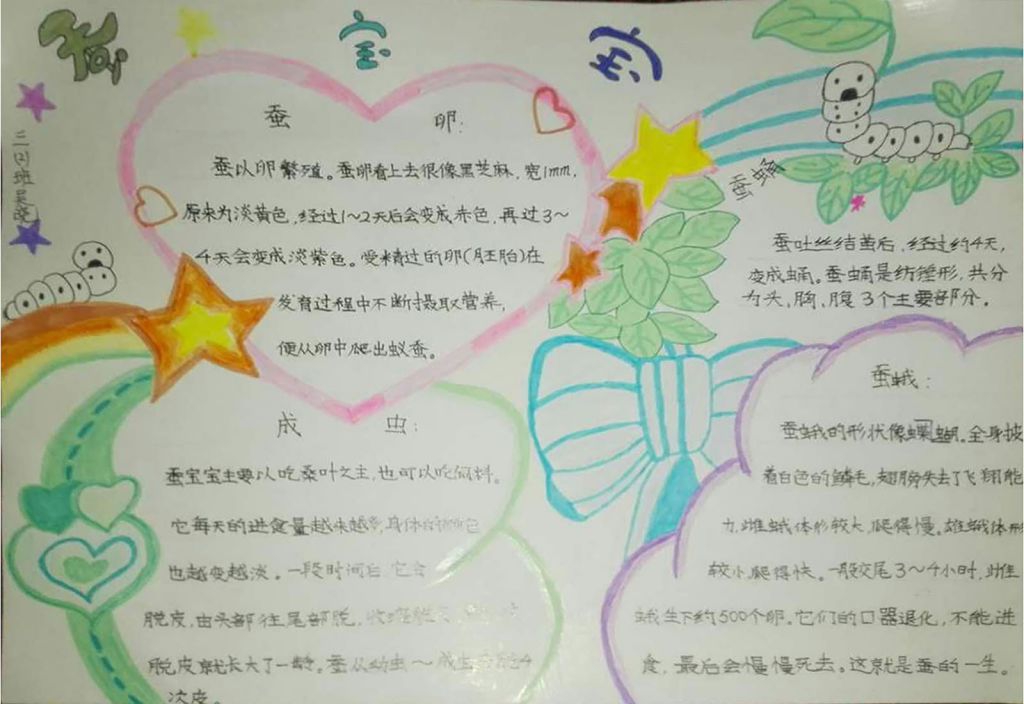 蚕 宝 宝
三(2)班吴晓
蚕 卵:
蚕以卵繁殖。蚕卵看上去很像黑芝麻,宽1mm,
原来为淡黄色,经过1~2天后会变成赤色,再过3~
4天会变成淡紫色。受精过的卵(胚胎)在
发育过程中不断摄取营养,
便从卵中爬出蚁蚕。
成 虫:
蚕宝宝主要以吃桑叶之主,也可以吃饲料。
它每天的进食量越来越多,身体的颜色
也越变越淡。一段时间后,它会
脱皮,由头部往尾部脱,
脱皮就长大了一龄。蚕从幼虫~成虫 4
次皮。
蚕蛹
蚕吐丝结茧后,经过约4天,
变成蛹。蚕蛹是纺锤形,共分
为头,胸,腹3个主要部分。
蚕蛾:
蚕蛾的形状像蝴蝶。全身披
着白色的鳞毛,翅膀失去了飞翔能
力,雌蛾体形较大,爬得慢。雄蛾体形
较小,爬得快。一般交尾3~4小时,雌
蛾生下约500个卵。它们的口器退化,不能进
食,最后会慢慢死去。这就是蚕的一生。